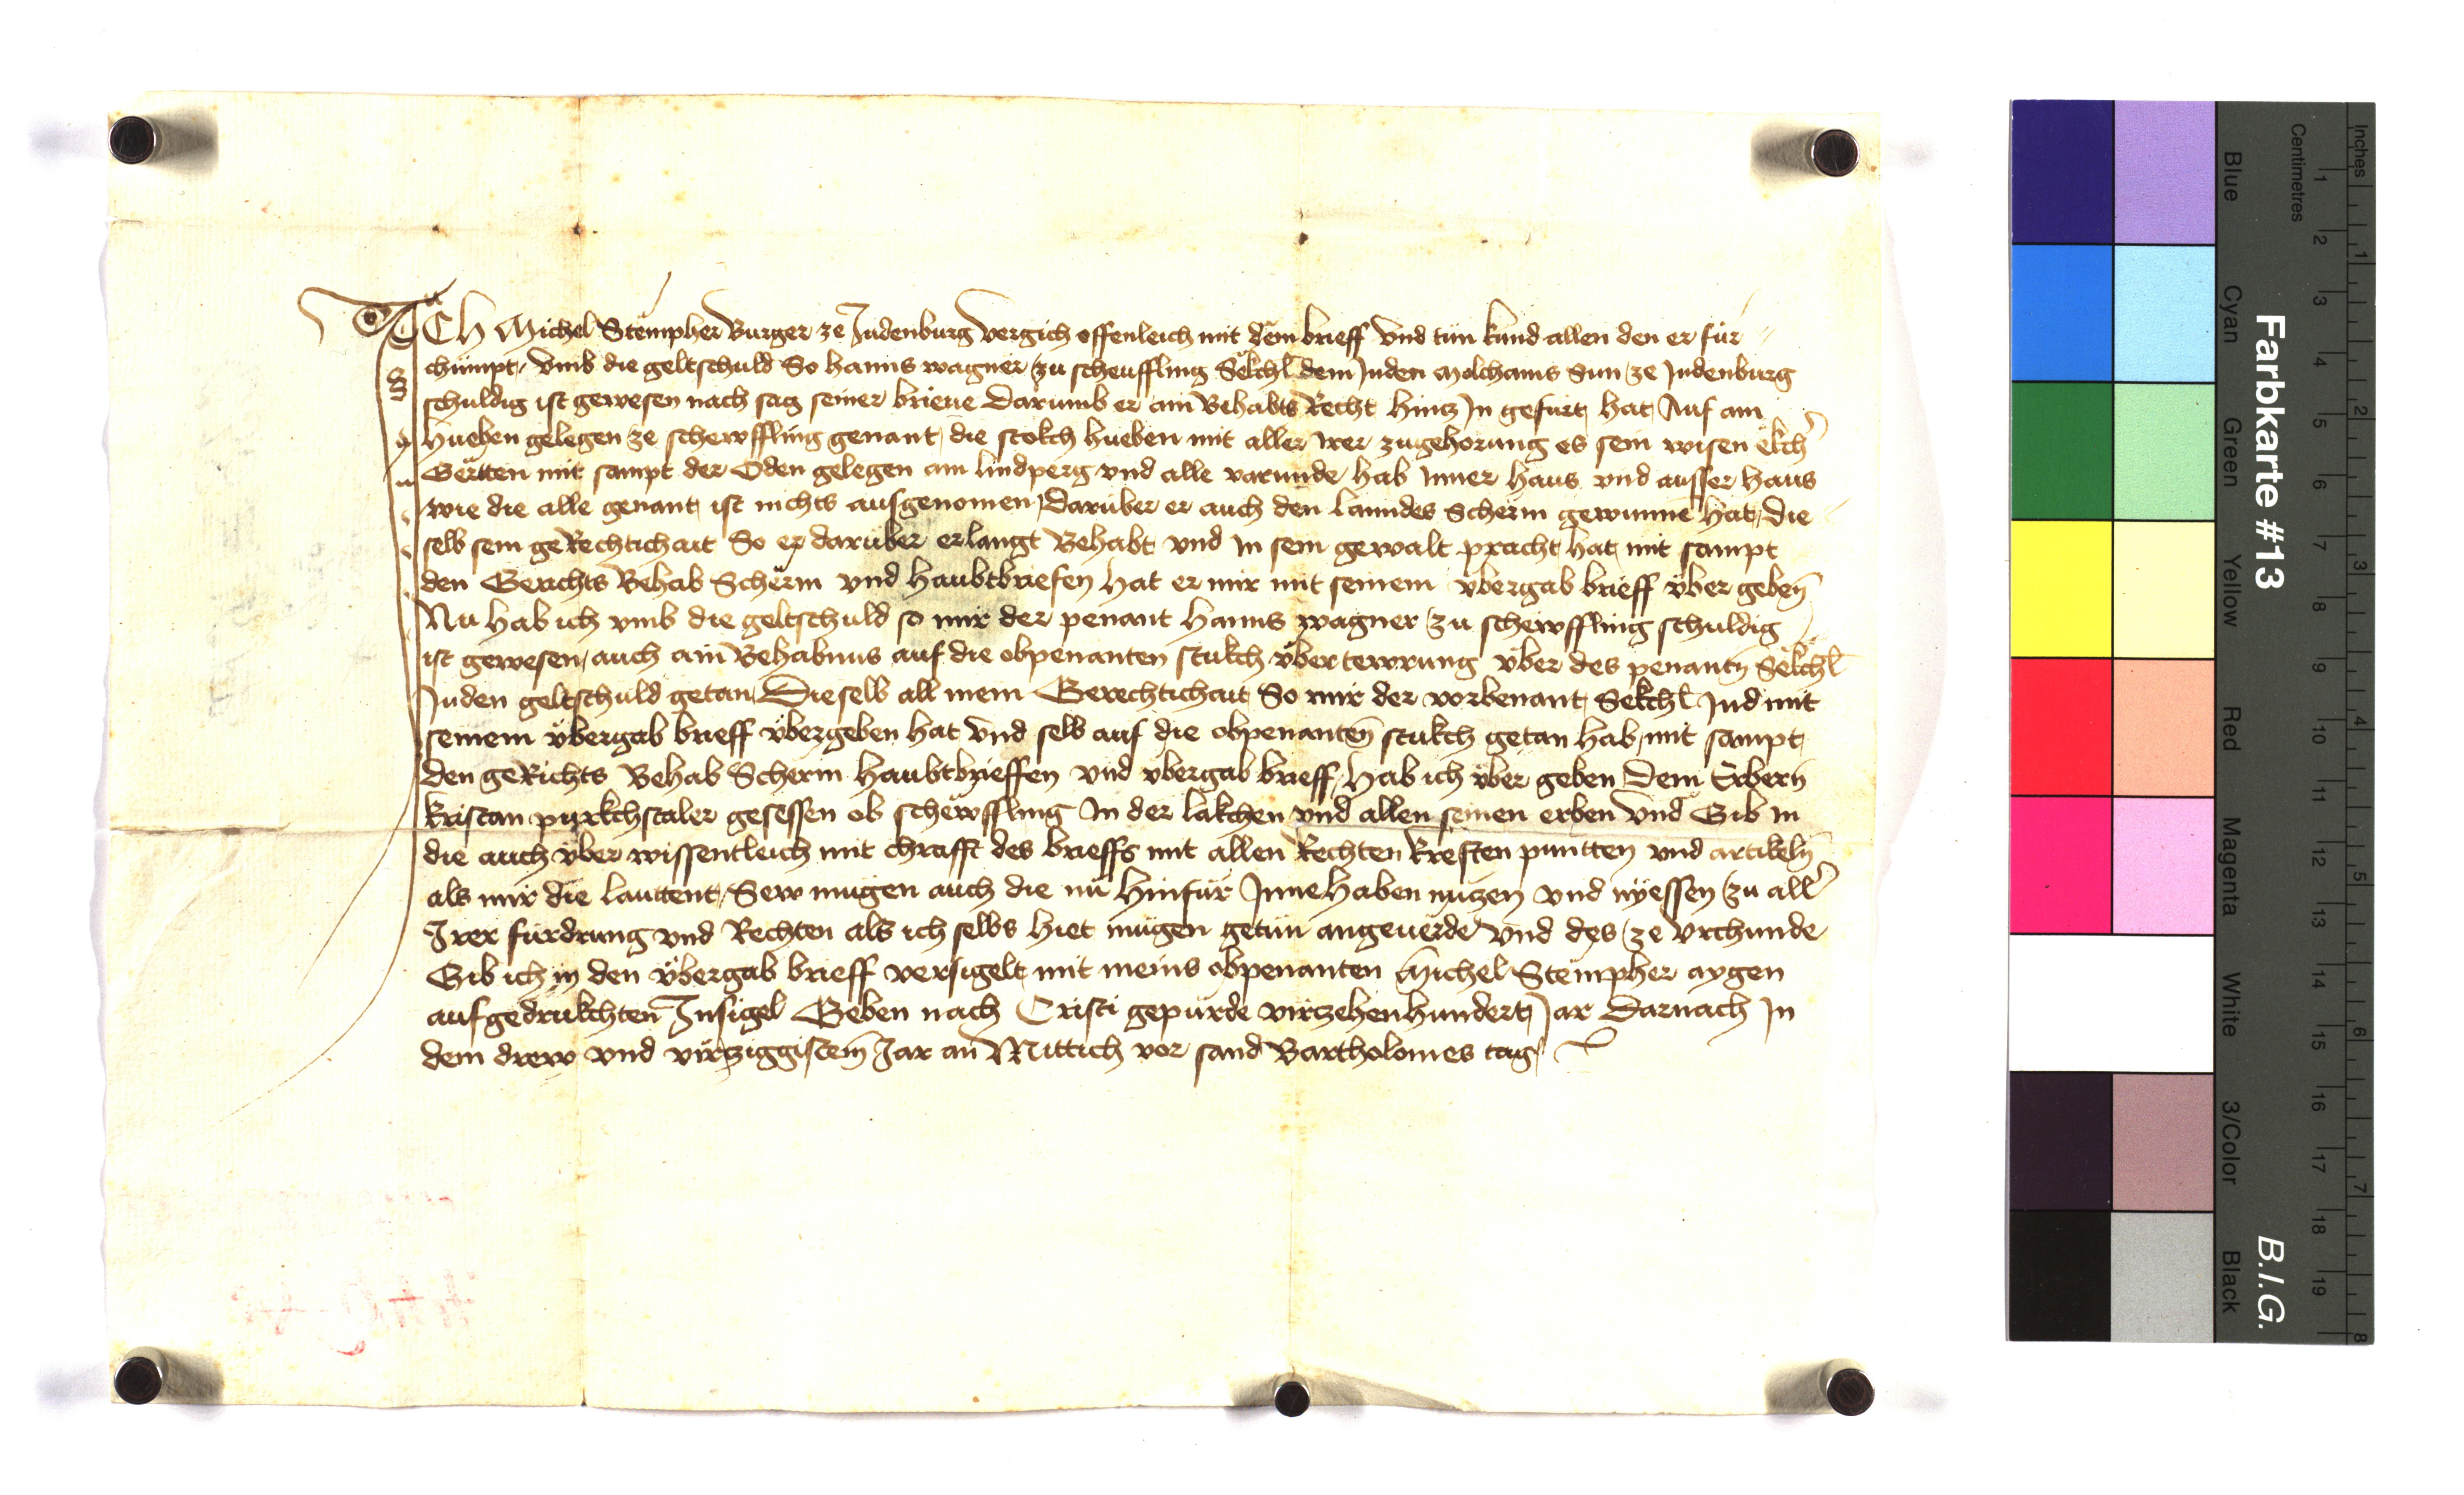 ICh Michel Stëmpher Burger ze Judenburg vergich offenleich mit dem brieff vnd tün kund allen den er für
chümpt, vmb die geltschuld So hanns wagner zu scheuffling Sëlchl dem Juden Molchams Sun ze Judenburg
schuldig ist gewesen nach sag seiner brieue Darumb er ain Behabts Recht hincz In gefürt hat Auf ain
hueben gelegen ze schewffling genant, die stokch hueben mit aller irer zugehörung es sein wisen ekch
Gërtten mit sampt der Öden gelegen am lindperg vnd alle varunde hab Inner haus vnd ausser haus
wie die alle genant ist nichts ausgenomen, Darüber er auch den lanndes Scherm gewunne hat, Die
selb sein geRechtichait So er darüber erlangt Behabt vnd in sein gewalt pracht hat mit sampt
den Gerichts Behab Schërm vnd haubtbriefen hat er mir mit seinem vbergab brieff vber geben
Nu hab ich vmb die geltschuld so mir der penant hanns wagner zu schewffling schuldig
ist gewesen, auch ain Behabnus auf die obpenanten stukch vbertewrung vber des penantn Sëlchl
Juden geltschuld getan, Dieselb all mein Gerechtichait So mir der vorbenant Sekchl Jud mit
seinem vbergab brieff vbergeben hat vnd selb auf die obpenanten stukch getan hab, mit sampt
den geRichts Behab Scherm haubtbrieffen vnd vbergab brieff, hab ich vber geben Dem Erbern
kristan purkchstaler gesessen ob schëwffling In der lakchen vnd allen seinen erben vnd Gib in
die auch vber wissentleich mit chrafft des brieffs mit allen Rechten kreften puntten vnd artikeln
als mir die lauttent, Sew mugen auch die nu hinfür Inne haben nuczen vnd nyessen zu all
Irer fürdrung vnd Rechten als ich selbs hiet mügen getün angeuërde vnd des ze vrchunde
Gib ich in den vbergab brieff versigelt mit meins obpenanten Michel Stëmpher aygen
aufgedrukchten Insigel Geben nach Cristi gepürde virczehenhundert Jar Darnach In
dem drew vnd virtziggistem Jar an Mittich vor sand Bartholomes tag
Farbkarte #13
B.I.G.
Inches
Centimetres
1 2 3 4 5 6 7 8 9 10 11 12 13 14 15 16 17 18 19
1 2 3 4 5 6 7 8
Blue Cyan Green Yellow Red Magenta White 3/Color Black